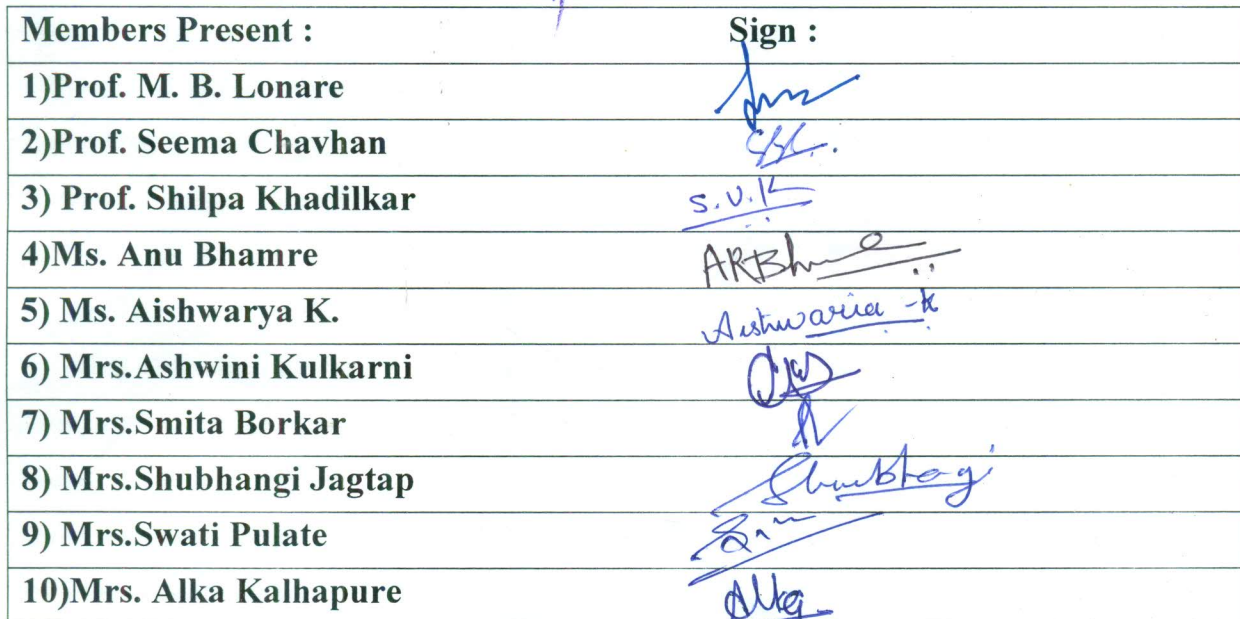 Members Present : Sign :
1)Prof. M. B. Lonare
2)Prof. Seema Chavhan
3) Prof. Shilpa Khadilkar S.V.K
4)Ms. Anu Bhamre ARBh
5) Ms. Aishwarya K. Aishwaria -k
6) Mrs.Ashwini Kulkarni
7) Mrs.Smita Borkar
8) Mrs.Shubhangi Jagtap
9) Mrs.Swati Pulate
10)Mrs. Alka Kalhapure Alka